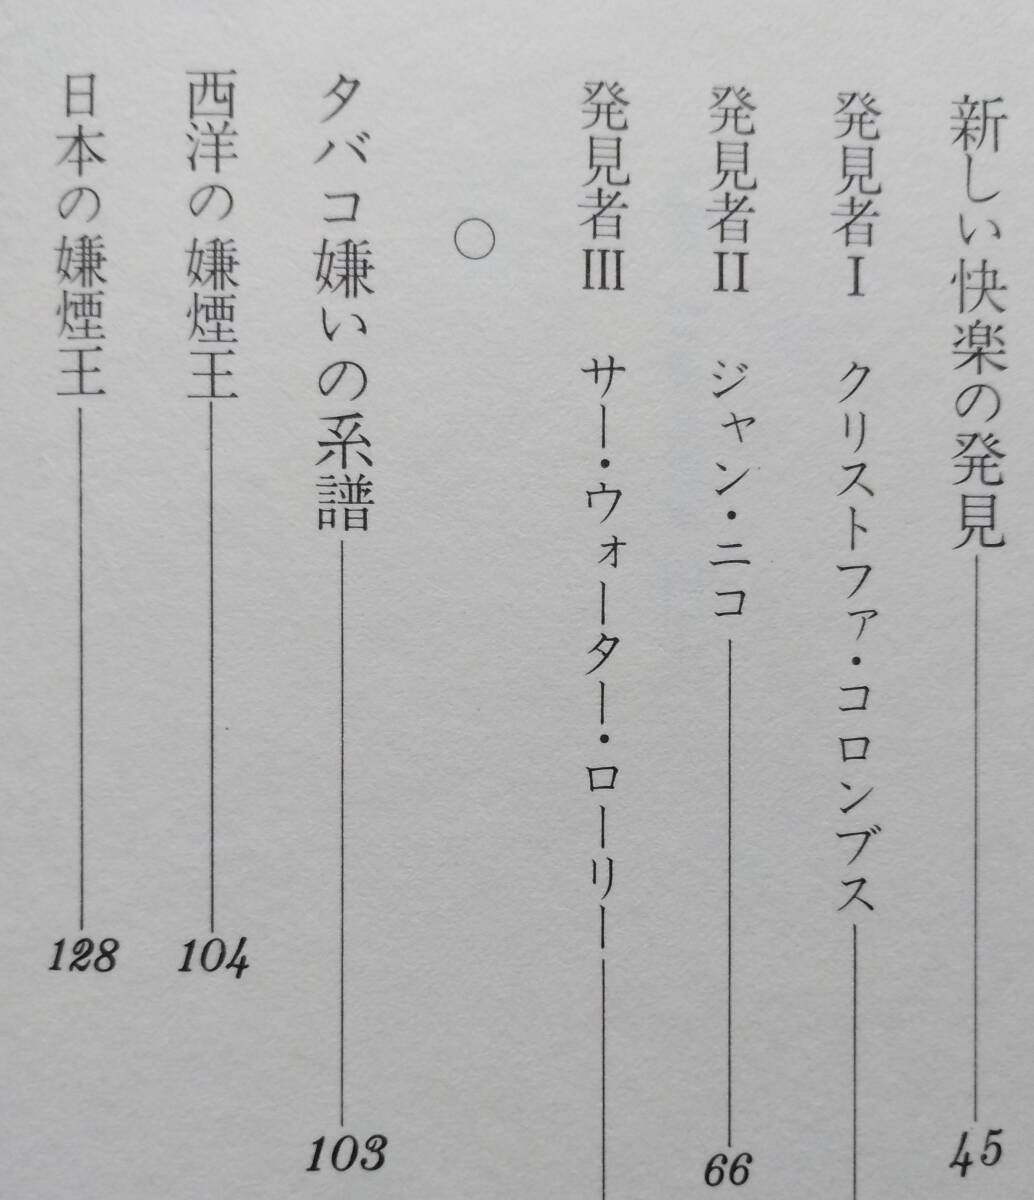 新しい快楽の発見――45
発見者Ⅰ クリストファ・コロンブス――
発見者Ⅱ ジャン・ニコ――66
発見者Ⅲ サー・ウォーター・ローリー――
○
タバコ嫌いの系譜――103
西洋の嫌煙王――104
日本の嫌煙王――128